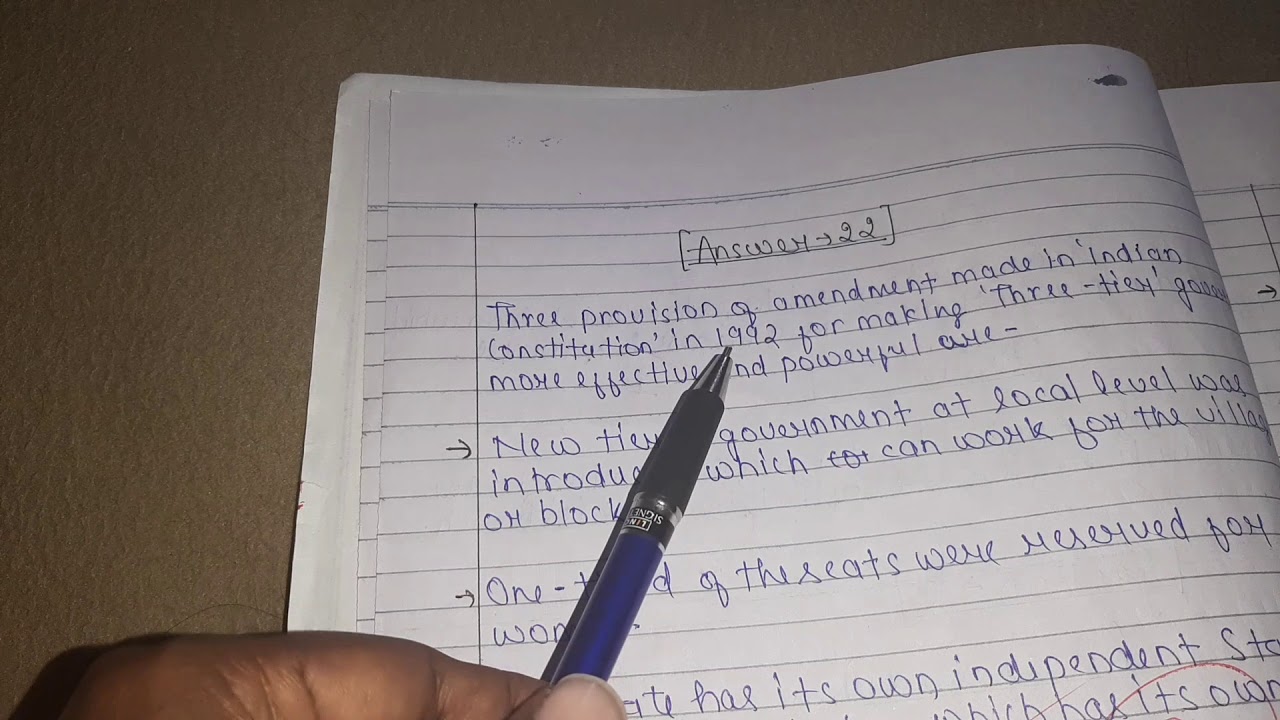 [Answer→22]
Three provision of amendment made in 'indian
Constitution' in 1992 for making 'Three-tier'
more effective and powerful are-
→ New tier government at local level was
which can work for the
or block
→ One- of the seats were reserved for

has its own independent
which has its own
LINC
SIGNET